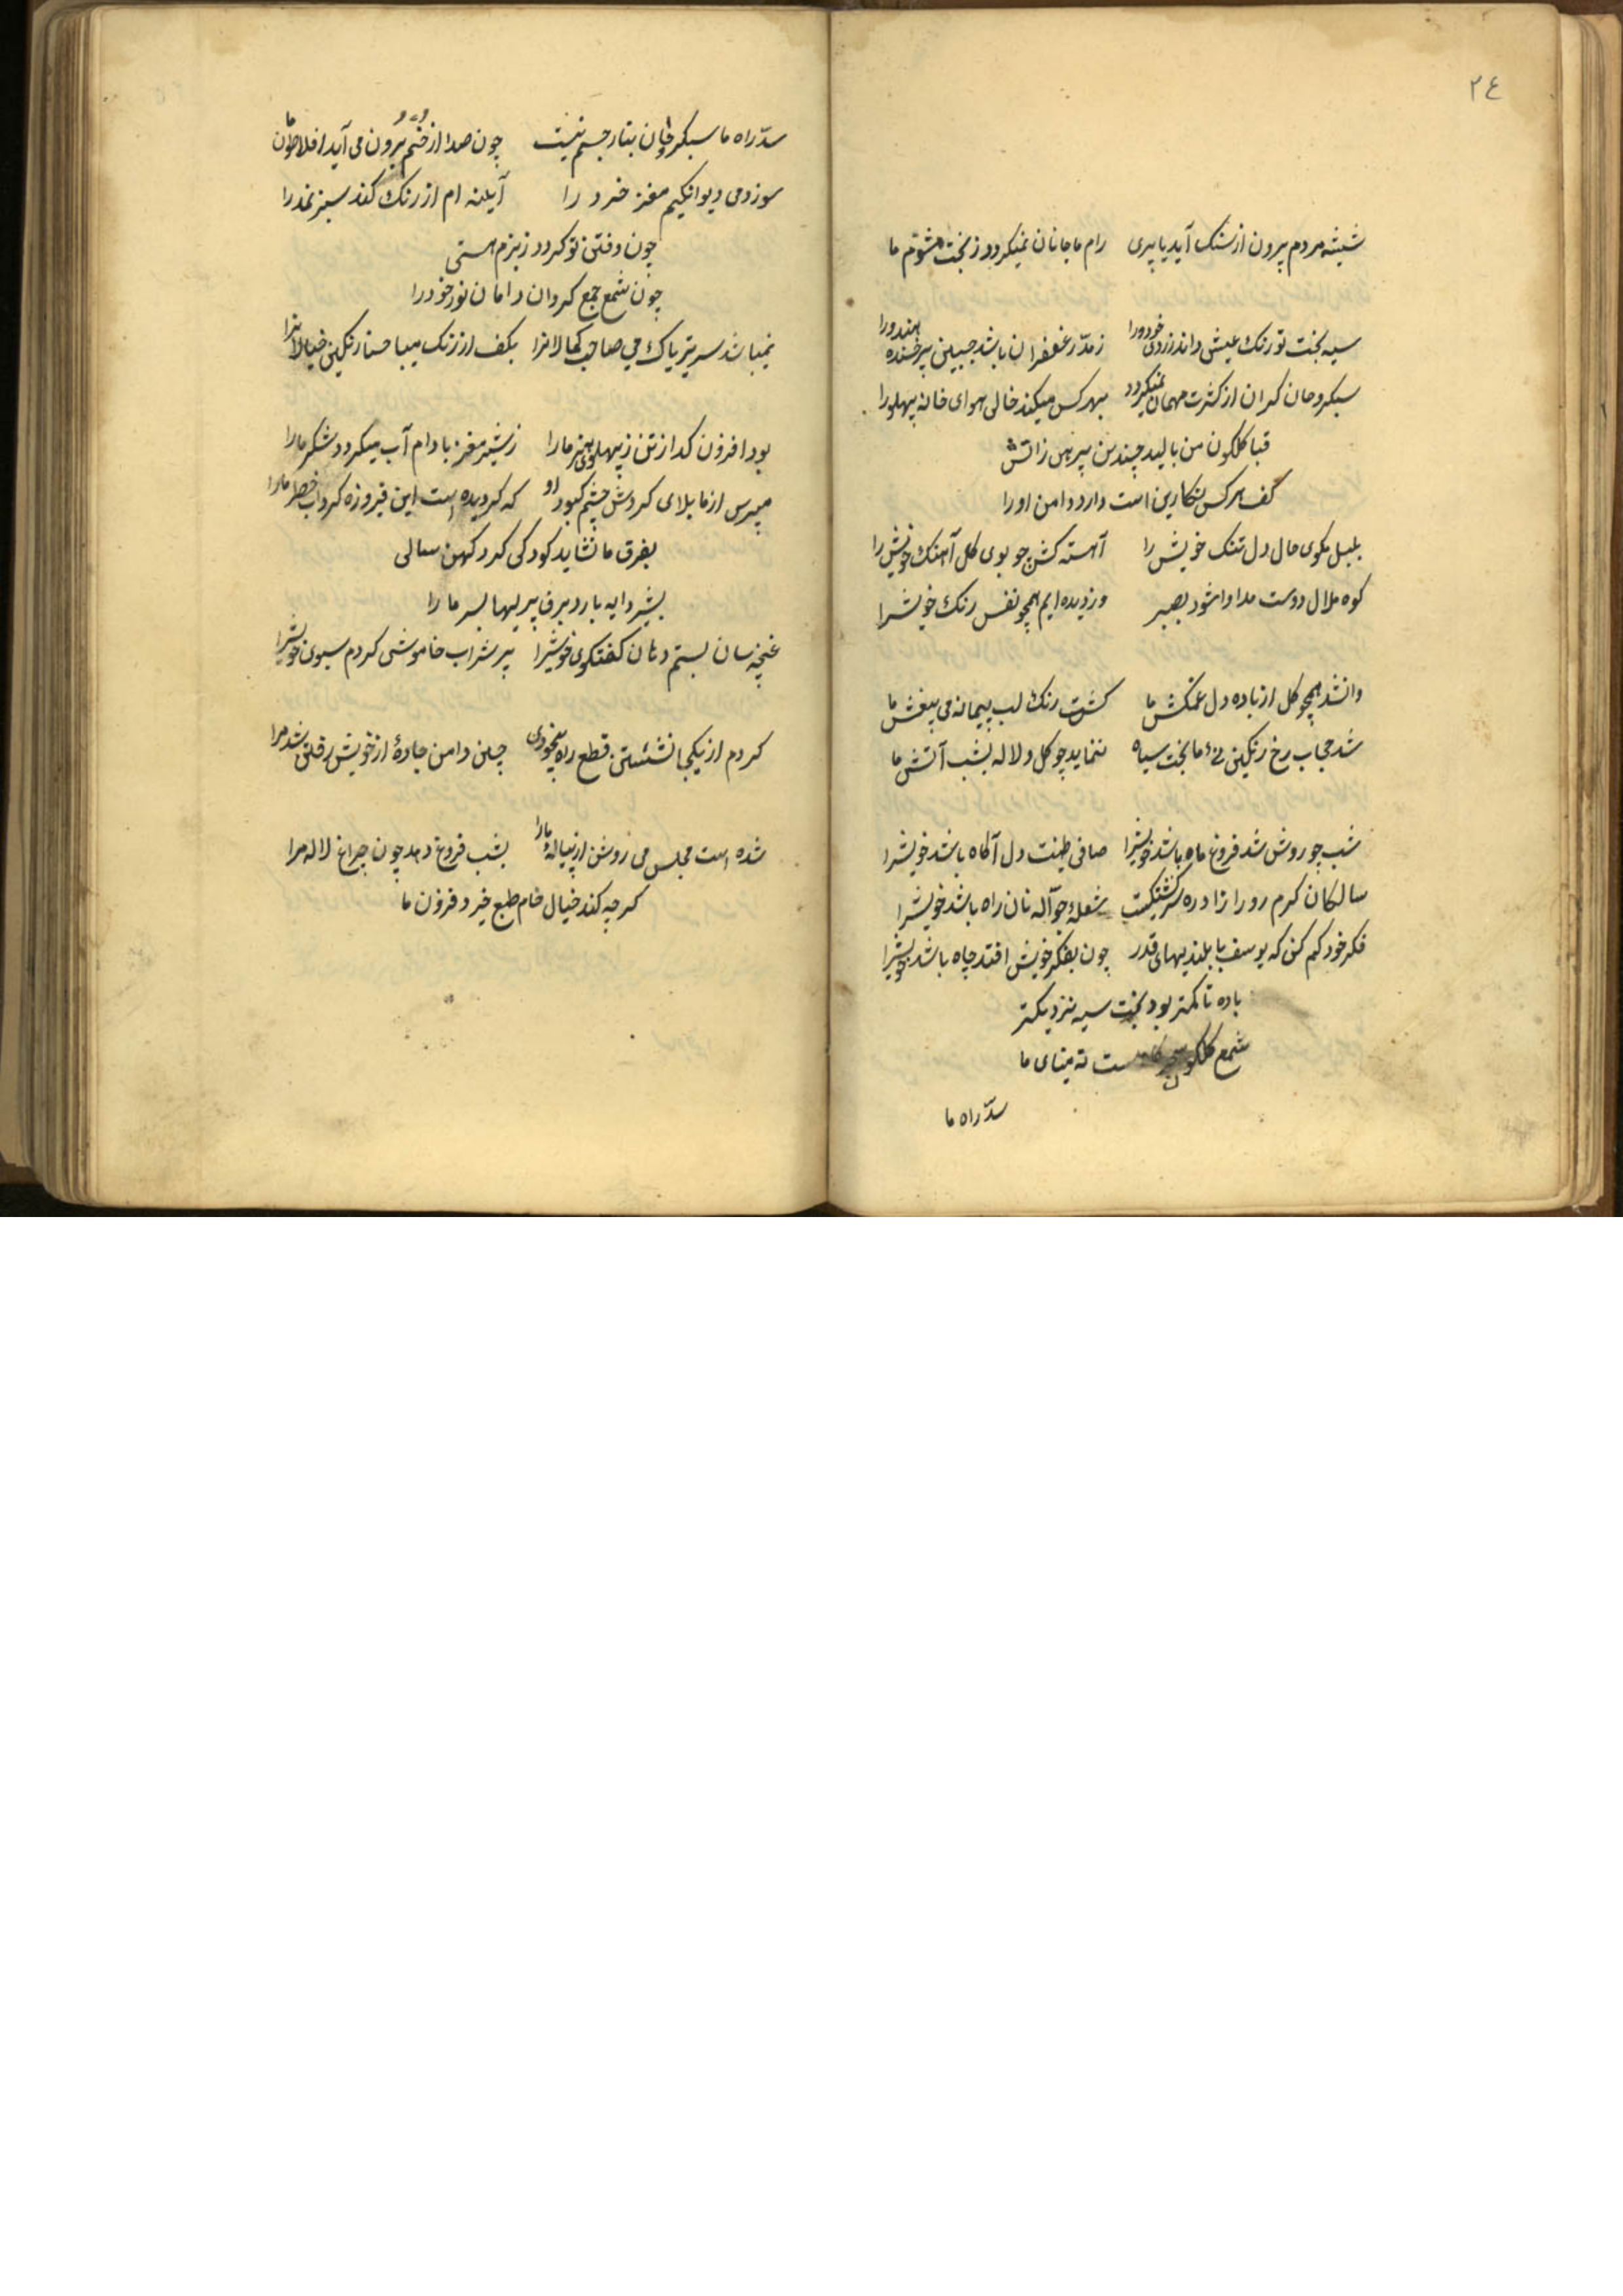 ٢٤
شیشه مردم برون از سنک آید با پری رام ما جانان نمیکردد ز بخت شوم ما
سیه بخت تو رنک عیش داند زردی خود را ز مدّ زعفران باشد جبین پرخنده هندو را
سبکروحان کران از کثرت مهمان نمیکردد بهر کس میکند خالی هوای خانه پهلو را
قبا کلکون من بالید چندین پیرهن زاتش
کف هر کس نکارین است دارد دامن او را
بلبل مکوی حال دل تنک خویش را آهسته کش چو بوی کل آهنک خویش را
کوه ملال دوست مداوا شود بصبر دزدیده ایم همچو نفس رنک خویشرا
وانشد همچو کل از باده دل غمکش ما کشت رنک لب پیمانه می بیغش ما
شد حجاب رخ رنکین ما بخت سیاه ننماید چو کل و لاله بشب آتش ما
شب چو روشن شد فروغ ماه باشد خویشرا صافی طینت دل آکاه باشد خویشرا
سالکان کرم رو را زاد ره سرکشتکیست شعلهٔ جوّاله نان راه باشد خویشرا
فکر خود کم کن که یوسف با بلندیهای قدر چون بفکر خویش افتد چاه باشد خویشرا
باده تا کمتر بود بخت سیه نزدیکتر
شمع کلکون ست ته مینای ما
سدّ راه ما
سدّ راه ما سبکروحان بتار جسم نیست چون صدا از خم برون می آید افلاطون ما
سوزد می دیوانکیم مغز خرد را آیینه ام از رنک کند سبز نمد را
چون وقتی تو کردد ز بزم هستی
چون شمع جمع کردان دامان نور خود را
نمیباشد سر تریاک می صاحب کمالانرا بکف از رنک میبا حنا رنکین خیالانرا
بود افزون کداز تن ز پهلوی هنر ما را ز شیر مغز بادام آب میکردد شکر ما را
مپرس از ما بلای کردش چشم کبود او که کردیده است این فیروزه کرداب خطر ما را
بفرق ما نشاید کودکی کرد کهن سالی
بشیر دایه بارد برف پیریها بسر ما را
غنچه سان بستم دهان کفتکوی خویشرا پر شراب خاموشی کردم سبوی خویشرا
کردم از یکجا نشستن قطع راه بیخودی چین دامن جادهٔ از خویش رفتن شد مرا
شده است مجلس می روشن از پیاله ما را بشب فروغ دهد چون چراغ لاله مرا
کرچه کند خیال خام طبع خرد فزون ما